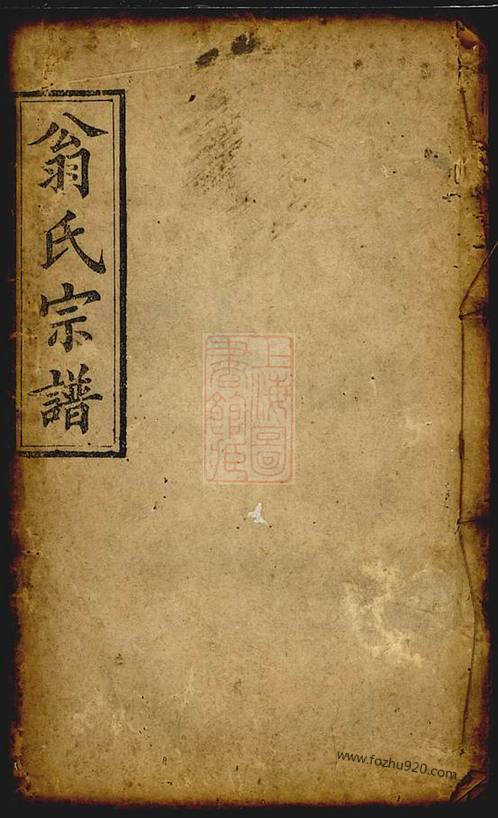 翁氏宗譜
上海圖
書館藏
www.fozhu920.com